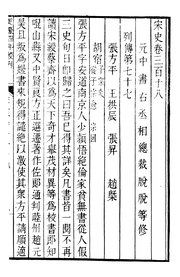 宋史卷三百十八
元中書右丞相總裁脫脫等修
列傳第七十七
張方平 王拱辰 張昪 趙槩
胡宿
張方平字安道南京人少頴悟絕倫家貧無書從人假
三史旬日即歸之曰吾已得其詳矣凡書皆一閱不再
讀宋綬蔡齊以為天下奇才舉茂材異等為校書郎知
崑山縣又中賢良方正選遷著作佐郎通判睦州趙元
昊且叛為嫚書來規得譴絕以激使其衆方平請順適